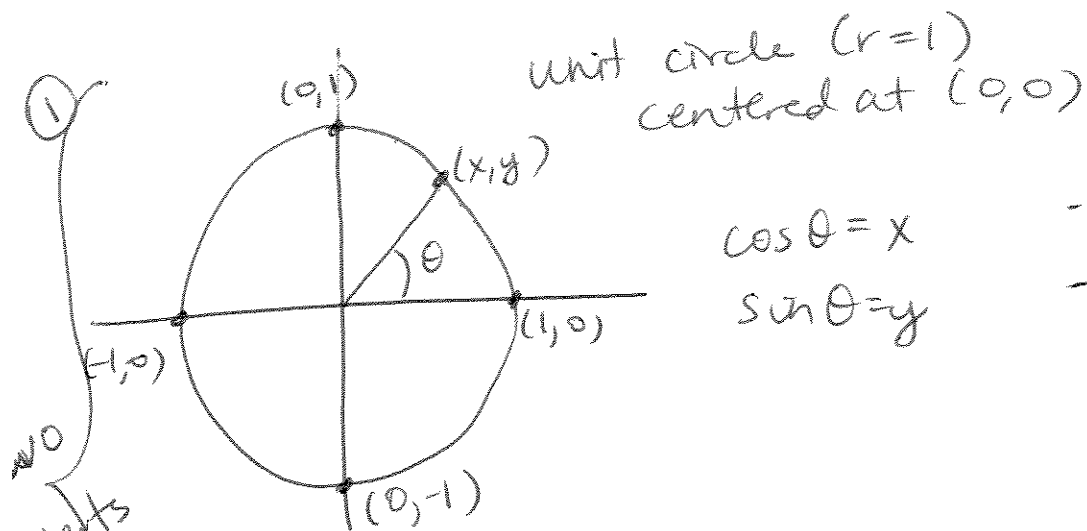 ①
unit circle (r=1)
centered at (0,0)
(0,1)
(x,y)
θ
cos θ = x
sin θ = y
(-1,0)
(1,0)
(0,-1)
NO